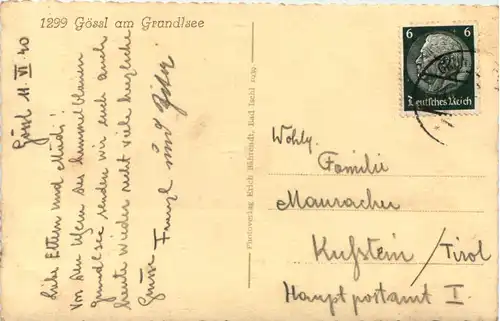 1299 Gössl am Grundlsee
Gössl 11. VI. 40
Liebe Eltern und
Von den Ufern des himmelblauen
Grundlsees senden wir Euch auch
heute wieder recht viele herzliche
Grüsse Franzl und
Photoverlag Erich Bährendt, Bad Ischl
6 6
Deutsches Reich
Wohlg.
Familie
Mauracher
Kufstein / Tirol
Hauptpostamt I